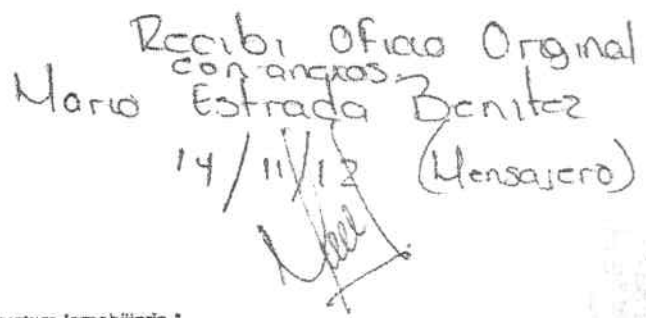 Recibi Oficio Original
con anexos.
Mario Estrada Benitez
14/11/12 (Mensajero)
Inmobiliaria